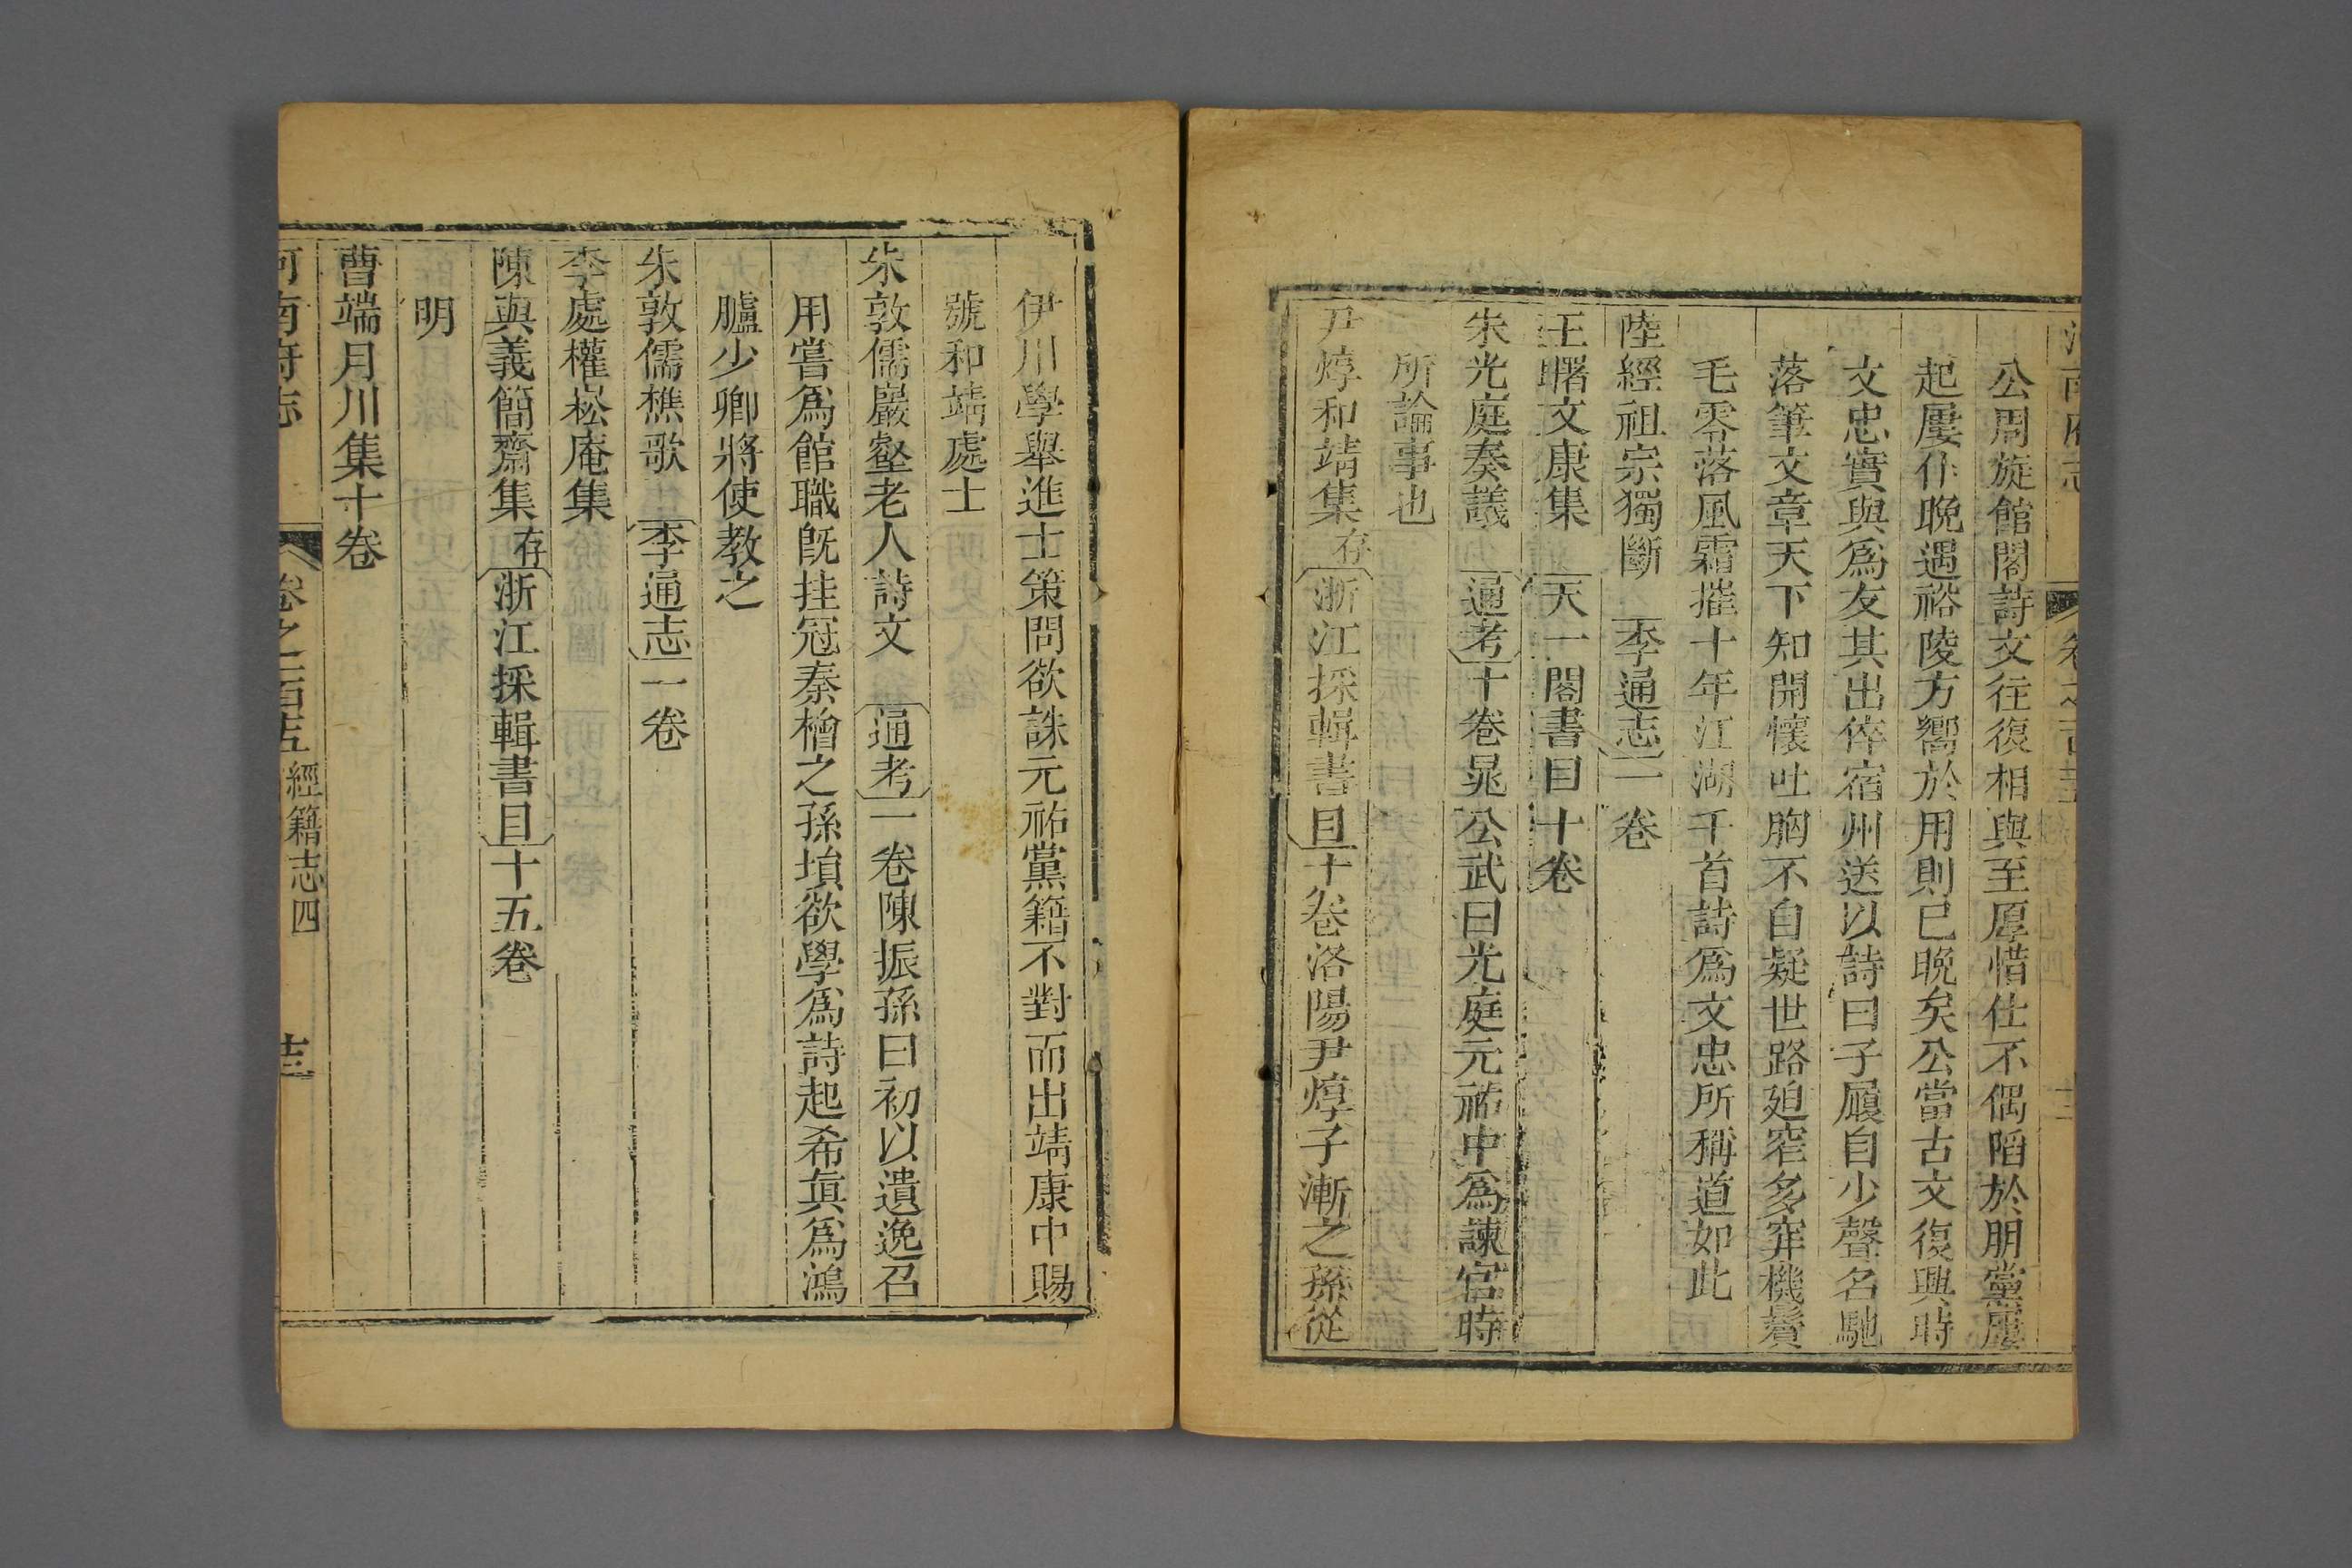 公周旋館閣詩文往復相與至厚惜仕不偶陷於朋黨屢
起屢仆晚遇裕陵方嚮於用則已晚矣公當古文復興時
文忠實與爲友其出倅宿州送以詩曰子履自少聲名馳
落筆文章天下知開懷吐胸不自疑世路廹窄多穽機鬢
毛零落風霜摧十年江湖千首詩爲文忠所稱道如此
陸經祖宗獨斷 李通志一卷
王曙文康集 天一閣書目十卷
朱光庭奏議 通考十卷晁公武曰光庭元祐中爲諫官時
所論事也
尹焞和靖集存浙江採輯書目十卷洛陽尹焞子漸之孫從
伊川學舉進士策問欲誅元祐黨籍不對而出靖康中賜
號和靖處士
朱敦儒巖壑老人詩文 通考一卷陳振孫曰初以遺逸召
用嘗爲館職旣挂冠秦檜之孫塤欲學爲詩起希眞爲鴻
臚少卿將使教之
朱敦儒樵歌 李通志一卷
李處權崧庵集
陳與義簡齋集存浙江採輯書目十五卷
明
曹端月川集十卷
河南府志 卷之一百五 經籍志四 十三